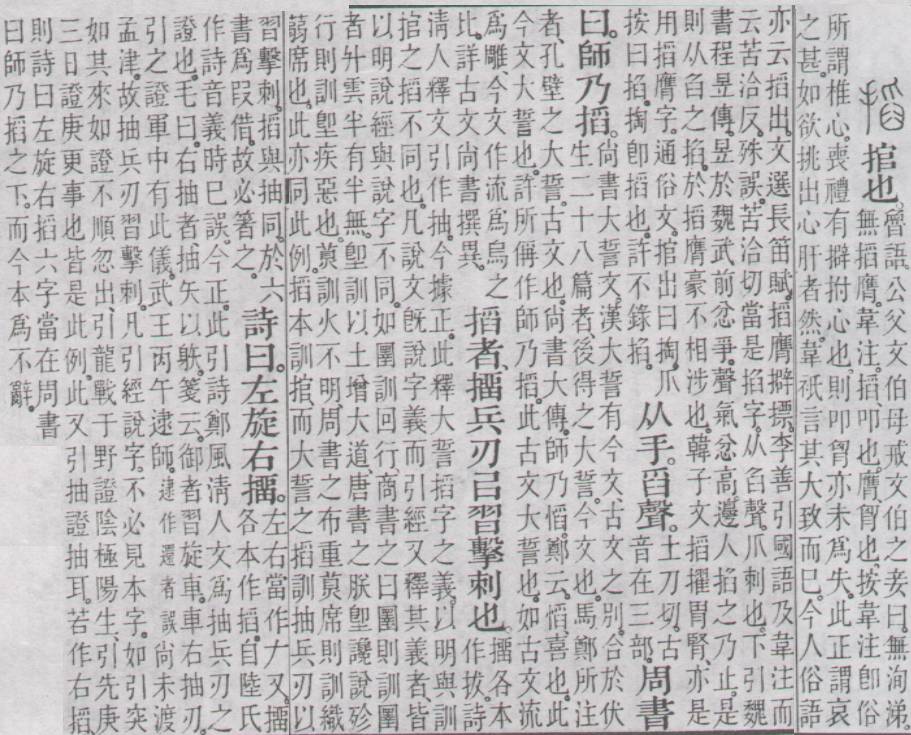 搯
捾也。魯語。公父文伯母戒文伯之妾曰。無洵涕。
無搯膺。韋注。搯、叩也。膺、胷也。按韋注卽俗
所謂椎心。喪禮有擗拊心也。則叩胷亦未爲失。此正謂哀
之甚。如欲挑出心肝者然。韋祇言其大致而已。今人俗語
亦云搯出。文選長笛賦。搯膺擗摽。李善引國語及韋注。而
云苦洽反。殊誤。苦洽切當是掐字。从臽聲。爪刺也。下引魏
書程昱傳。昱於魏武前忿爭。聲氣忿高。邊人掐之乃止。是
則从臽之掐。於搯膺豪不相涉也。韓子文搯擢胃腎。亦是
用搯膺字。通俗文。捾出曰掏。爪
按曰掐。掏卽搯也。許不錄掐。
从手。舀聲。土刀切。古
音在三部。
周書
曰。師乃搯。尙書大誓文。漢大誓有今文、古文之别。合於伏
生二十八篇者、後得之大誓。今文也。馬鄭所注
者、孔壁之大誓。古文也。尙書大傳。師乃慆。鄭云。慆、喜也。此
今文大誓也。許所偁作師乃搯。此古文大誓也。如古文流
爲雕、今文作流爲烏之
比。詳古文尙書撰異。
搯者、㩅兵刃㠯習擊刺也。㩅各本
作拔。詩
清人釋文引作抽。今據正。此釋大誓搯字之義。以明與訓
捾之搯不同也。凡說文旣說字義而引經又釋其義者、皆
以明說經與說字不同。如圛訓回行。商書之曰圛則訓圛
者升雲半有半無。堲訓以土增大道。唐書之朕堲讒說殄
行則訓堲疾惡也。莫訓火不明。周書之布重莫席則訓織
蒻席也。此亦同此例。搯本訓捾。而大誓之搯訓抽兵刃以
習擊刺。搯與抽同於六
書爲叚借。故必箸之。
詩曰。左旋右㩅。左右當作𠂇又。㩅
各本作搯。自陸氏
作詩音義時巳誤。今正。此引詩鄭風清人文。爲抽兵刃之
證也。毛曰。右抽者、抽矢以躲。箋云。御者習旋車。車右抽刃
引之證。軍中有此儀。武王丙午逮師。逮作還者誤尙未渡
孟津。故抽兵刃習擊刺。凡引經說字。不必見本字。如引突
如其來如證不順忽出、引龍戰于野證陰極陽生、引先庚
三日證庚更事也皆是此例。此又引抽證抽耳。若作右搯
則詩曰左旋右搯六字當在周書
曰師乃搯之下。而今本爲不辭。